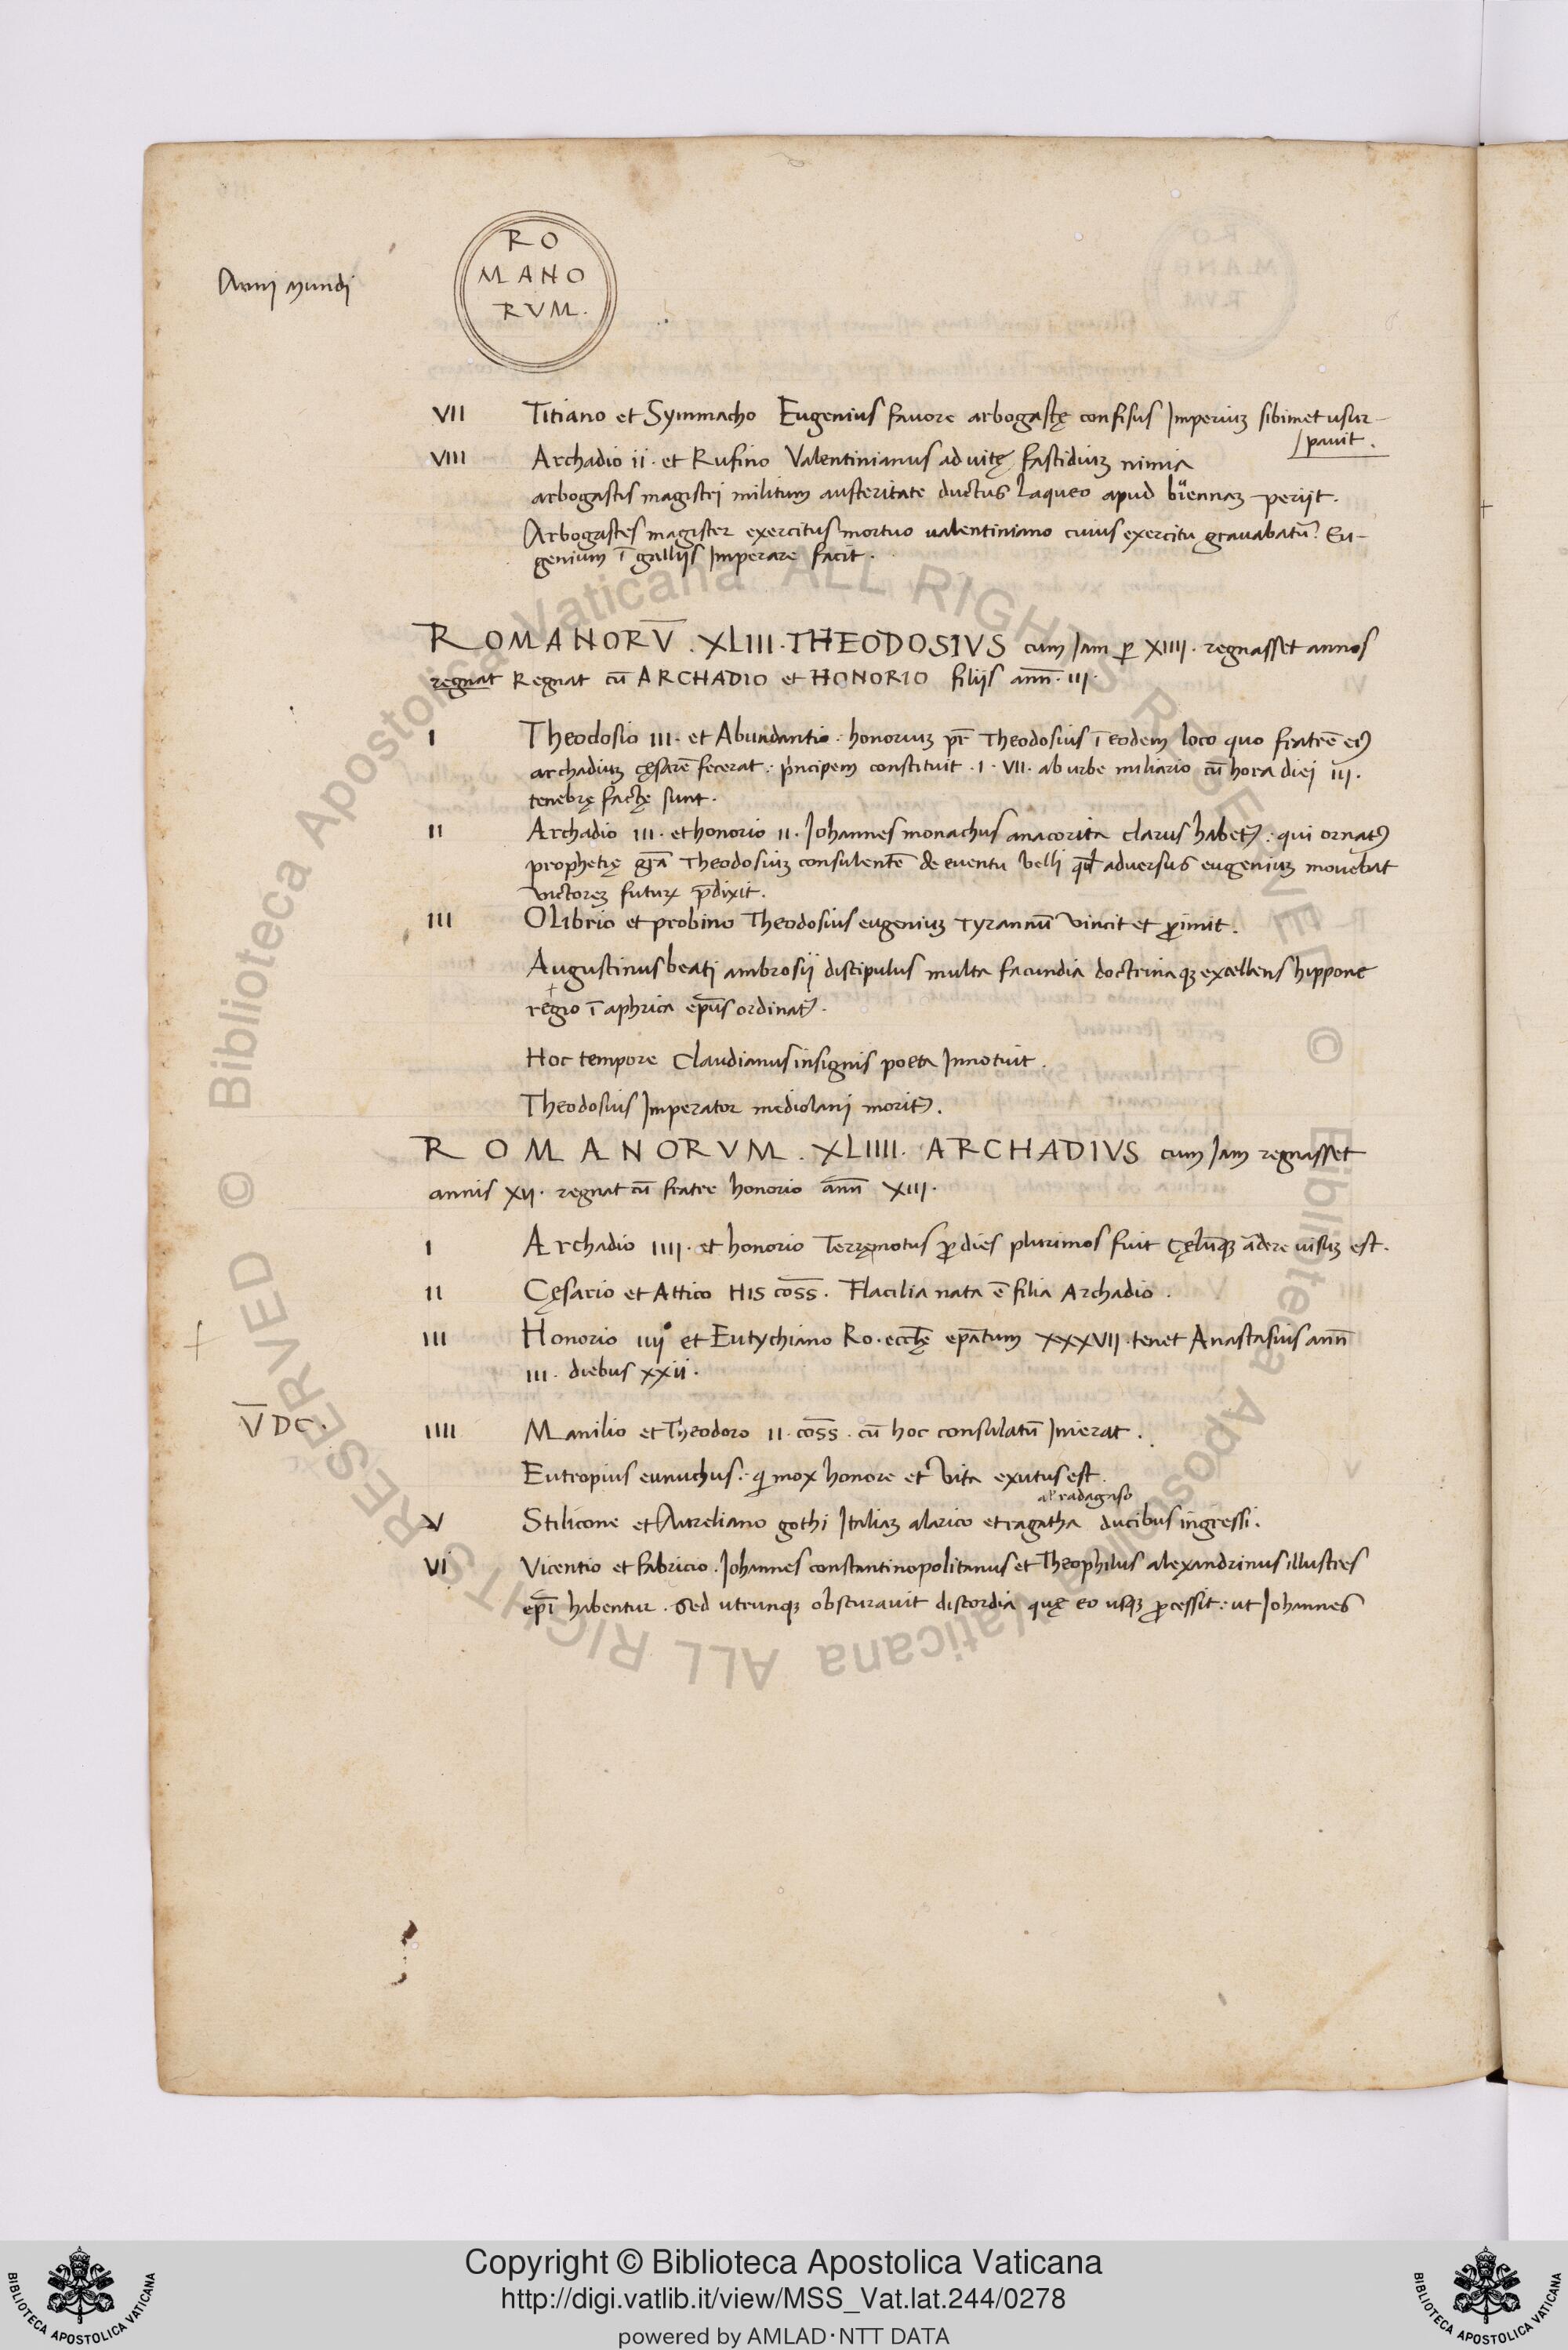 Anni mundi
RO
MANO
RVM.
VII Titiano et Symmacho Eugenius favore arbogastę confisus Imperiuʒ sibimet usur-
pavit.
VIII Archadio ii. et Rufino Valentinianus ad vitę fastidiuʒ nimia
arbogastis magistri militum austeritate ductus Laqueo apud bïennaʒ perijt.
Arbogastes magister exercitus mortuo valentiniano cuius exercitu gravabatur̄ Eu-
genium ī gallijs Imperare facit.
ROMANORV̄. XLIII. THEODOSIVS cum Jam ꝑ XIIII. regnasset annos
regnat Regnat cū ARCHADIO et HONORIO filijs ann̄. III.
I Theodosio III. et Abundantio: honoriuʒ pr̄ Theodosius ī eodem loco quo fratrē eiꝰ
archadiuʒ cęsarē fecerat: principem constituit. I. VII. ab urbe miliario cū hora diei III.
tenebrę factę sunt.
II Archadio III. et honorio II. Johannes monachus anacorita clarus habetꝰ: qui ornatꝰ
prophetię gr̄a Theodosiuʒ consulentē de eventu belli qd̄ adversus eugeniuʒ movebat
victoreʒ futuꝝ p̄dixit.
III OLibrio et probino Theodosius eugeniuʒ Tyrannū vincit et ꝑimit.
Augustinus beati ambrosij discipulus multa facundia doctrinaqʒ excellens hippone
regio ī aphrica ep̄us ordinatꝰ.
Hoc tempore Claudianus insignis poeta Innotuit.
Theodosius Imperator mediolani moritꝰ.
ROMANORVM. XLIIII. ARCHADIVS cum Jam regnasset
annis XII. regnat cū fratre honorio ann̄ XIII.
I Archadio IIII. et honorio Terręmotus ꝑ dies plurimos fuit Cęlūqʒ ādere visuʒ est.
II Cęsario et Attico HIS coss̄. Flacilia nata ē filia Archadio.
III Honorio IIIIº et Eutychiano Ro. eccl̄ę ep̄atum XXXVII. tenet Anastasius ann̄
III. diebus xxii.
V̄DC.
IIII Manilio et Theodoro II. coss̄. cū hoc consulatū Inierat.
Eutropius eunuchus: qi mox honore et vita exutus est.
al radagaso
V Stilicone et Aureliano gothi Italiaʒ alarico et ragatha ducibus ingressi.
VI Vicentio et fabricio. Johannes constantinopolitanus et Theophilus alexandrinus illustres
ep̄i habentur. Sed utrunqʒ obscuravit discordia quę eo usqʒ ꝓcessit: ut Johannes
Copyright © Biblioteca Apostolica Vaticana
http://digi.vatlib.it/view/MSS_Vat.lat.244/0278
powered by AMLAD·NTT DATA
BIBLIOTECA APOSTOLICA VATICANA
BIBLIOTECA APOSTOLICA VATICANA
© Biblioteca Apostolica Vaticana ALL RIGHTS RESERVED
© Biblioteca Apostolica Vaticana ALL RIGHTS RESERVED